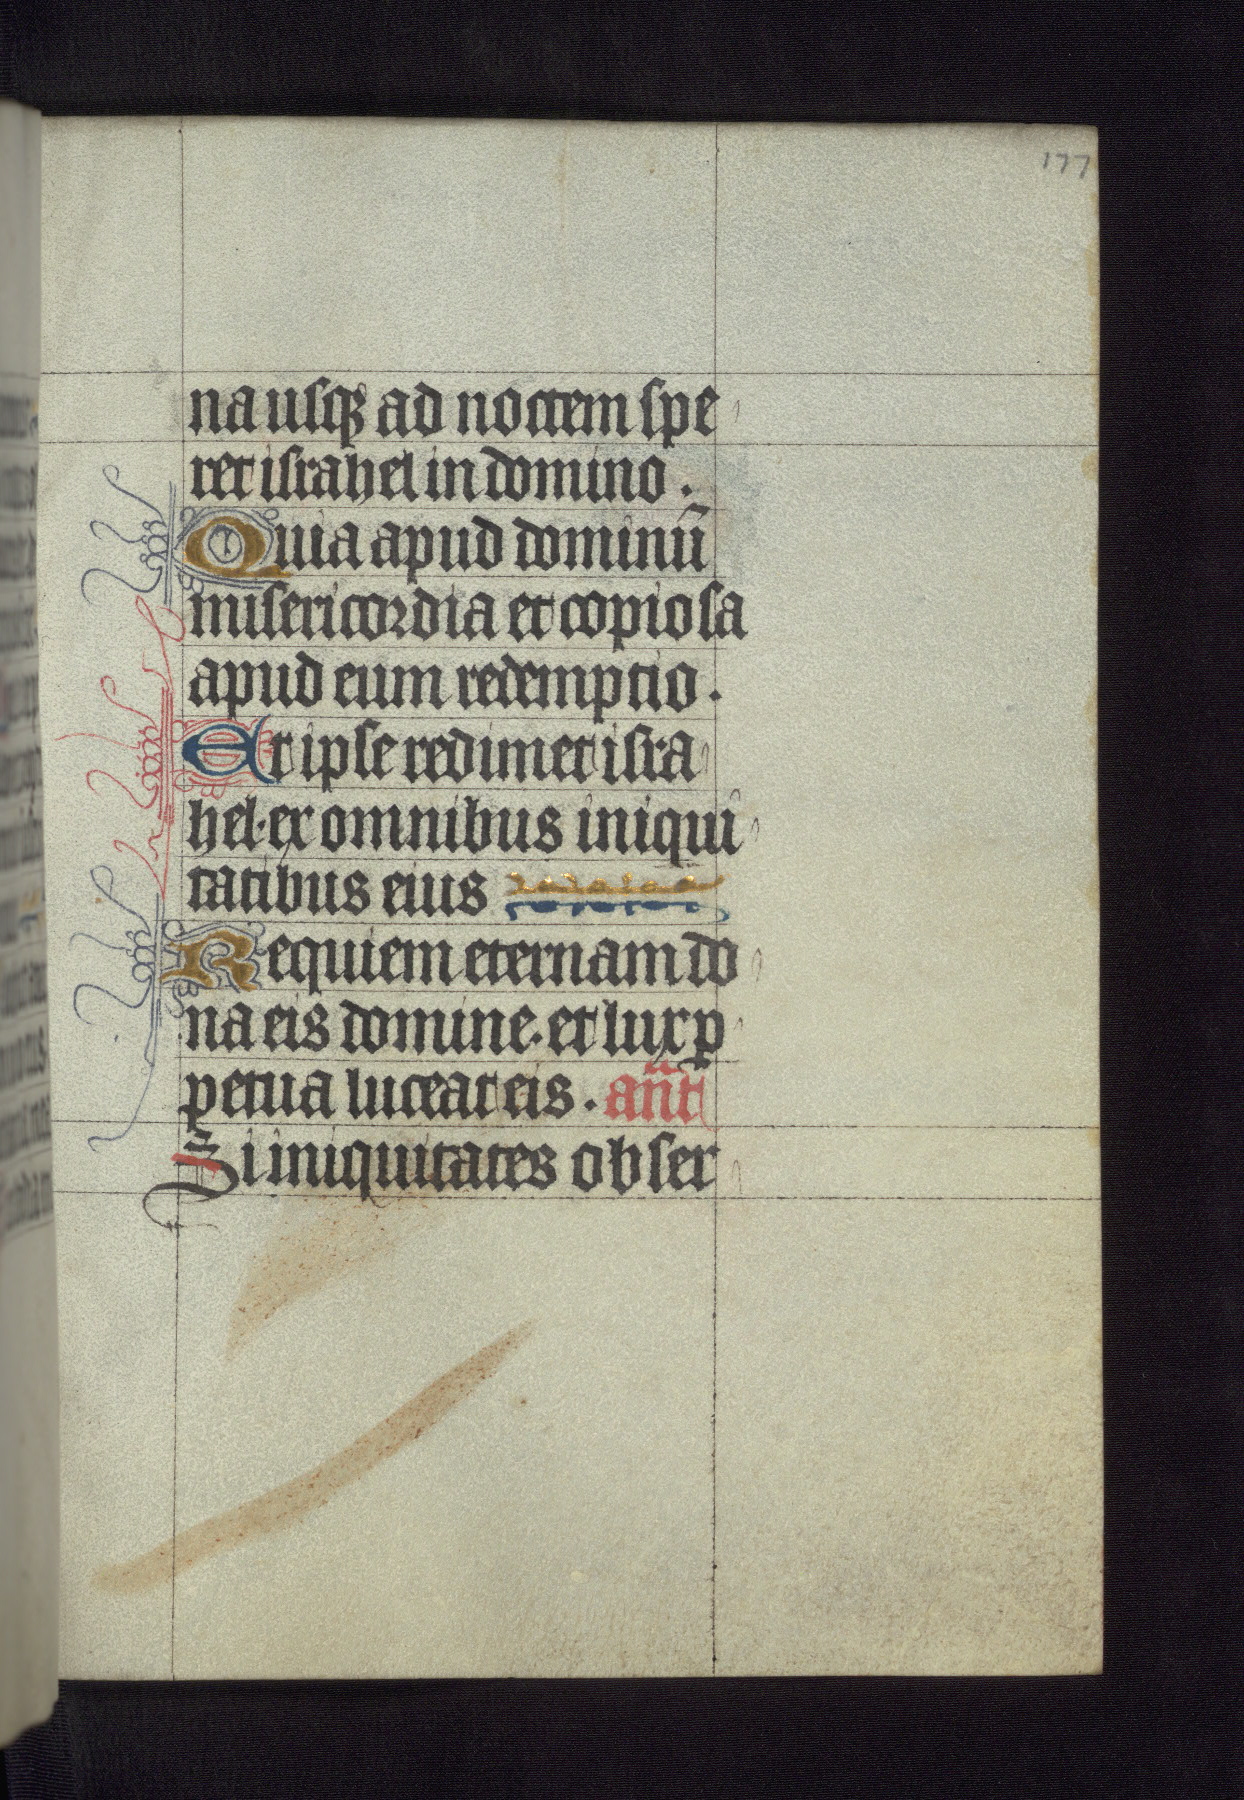 177
na usq3 ad noctem spe
ret israhel in domino .
Quia apud dominū
misericordia et copiosa
apud eum redemptio .
Et ipse redimet isra
hel · ex omnibus iniqui
tatibus eius
Requiem eternam do
na eis domine · et lux ꝑ
petua luceat eis . an̄t
Si iniquitates obser